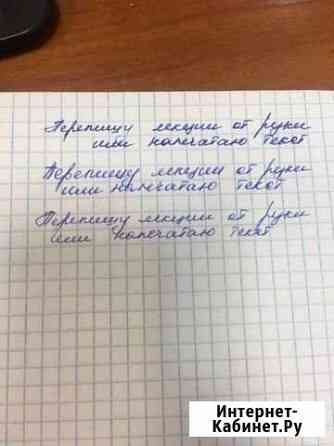 Перепишу лекции от руки
или напечатаю текст
Перепишу лекции от руки
или напечатаю текст
Перепишу лекции от руки
или напечатаю текст
Интернет-
Кабинет.Ру